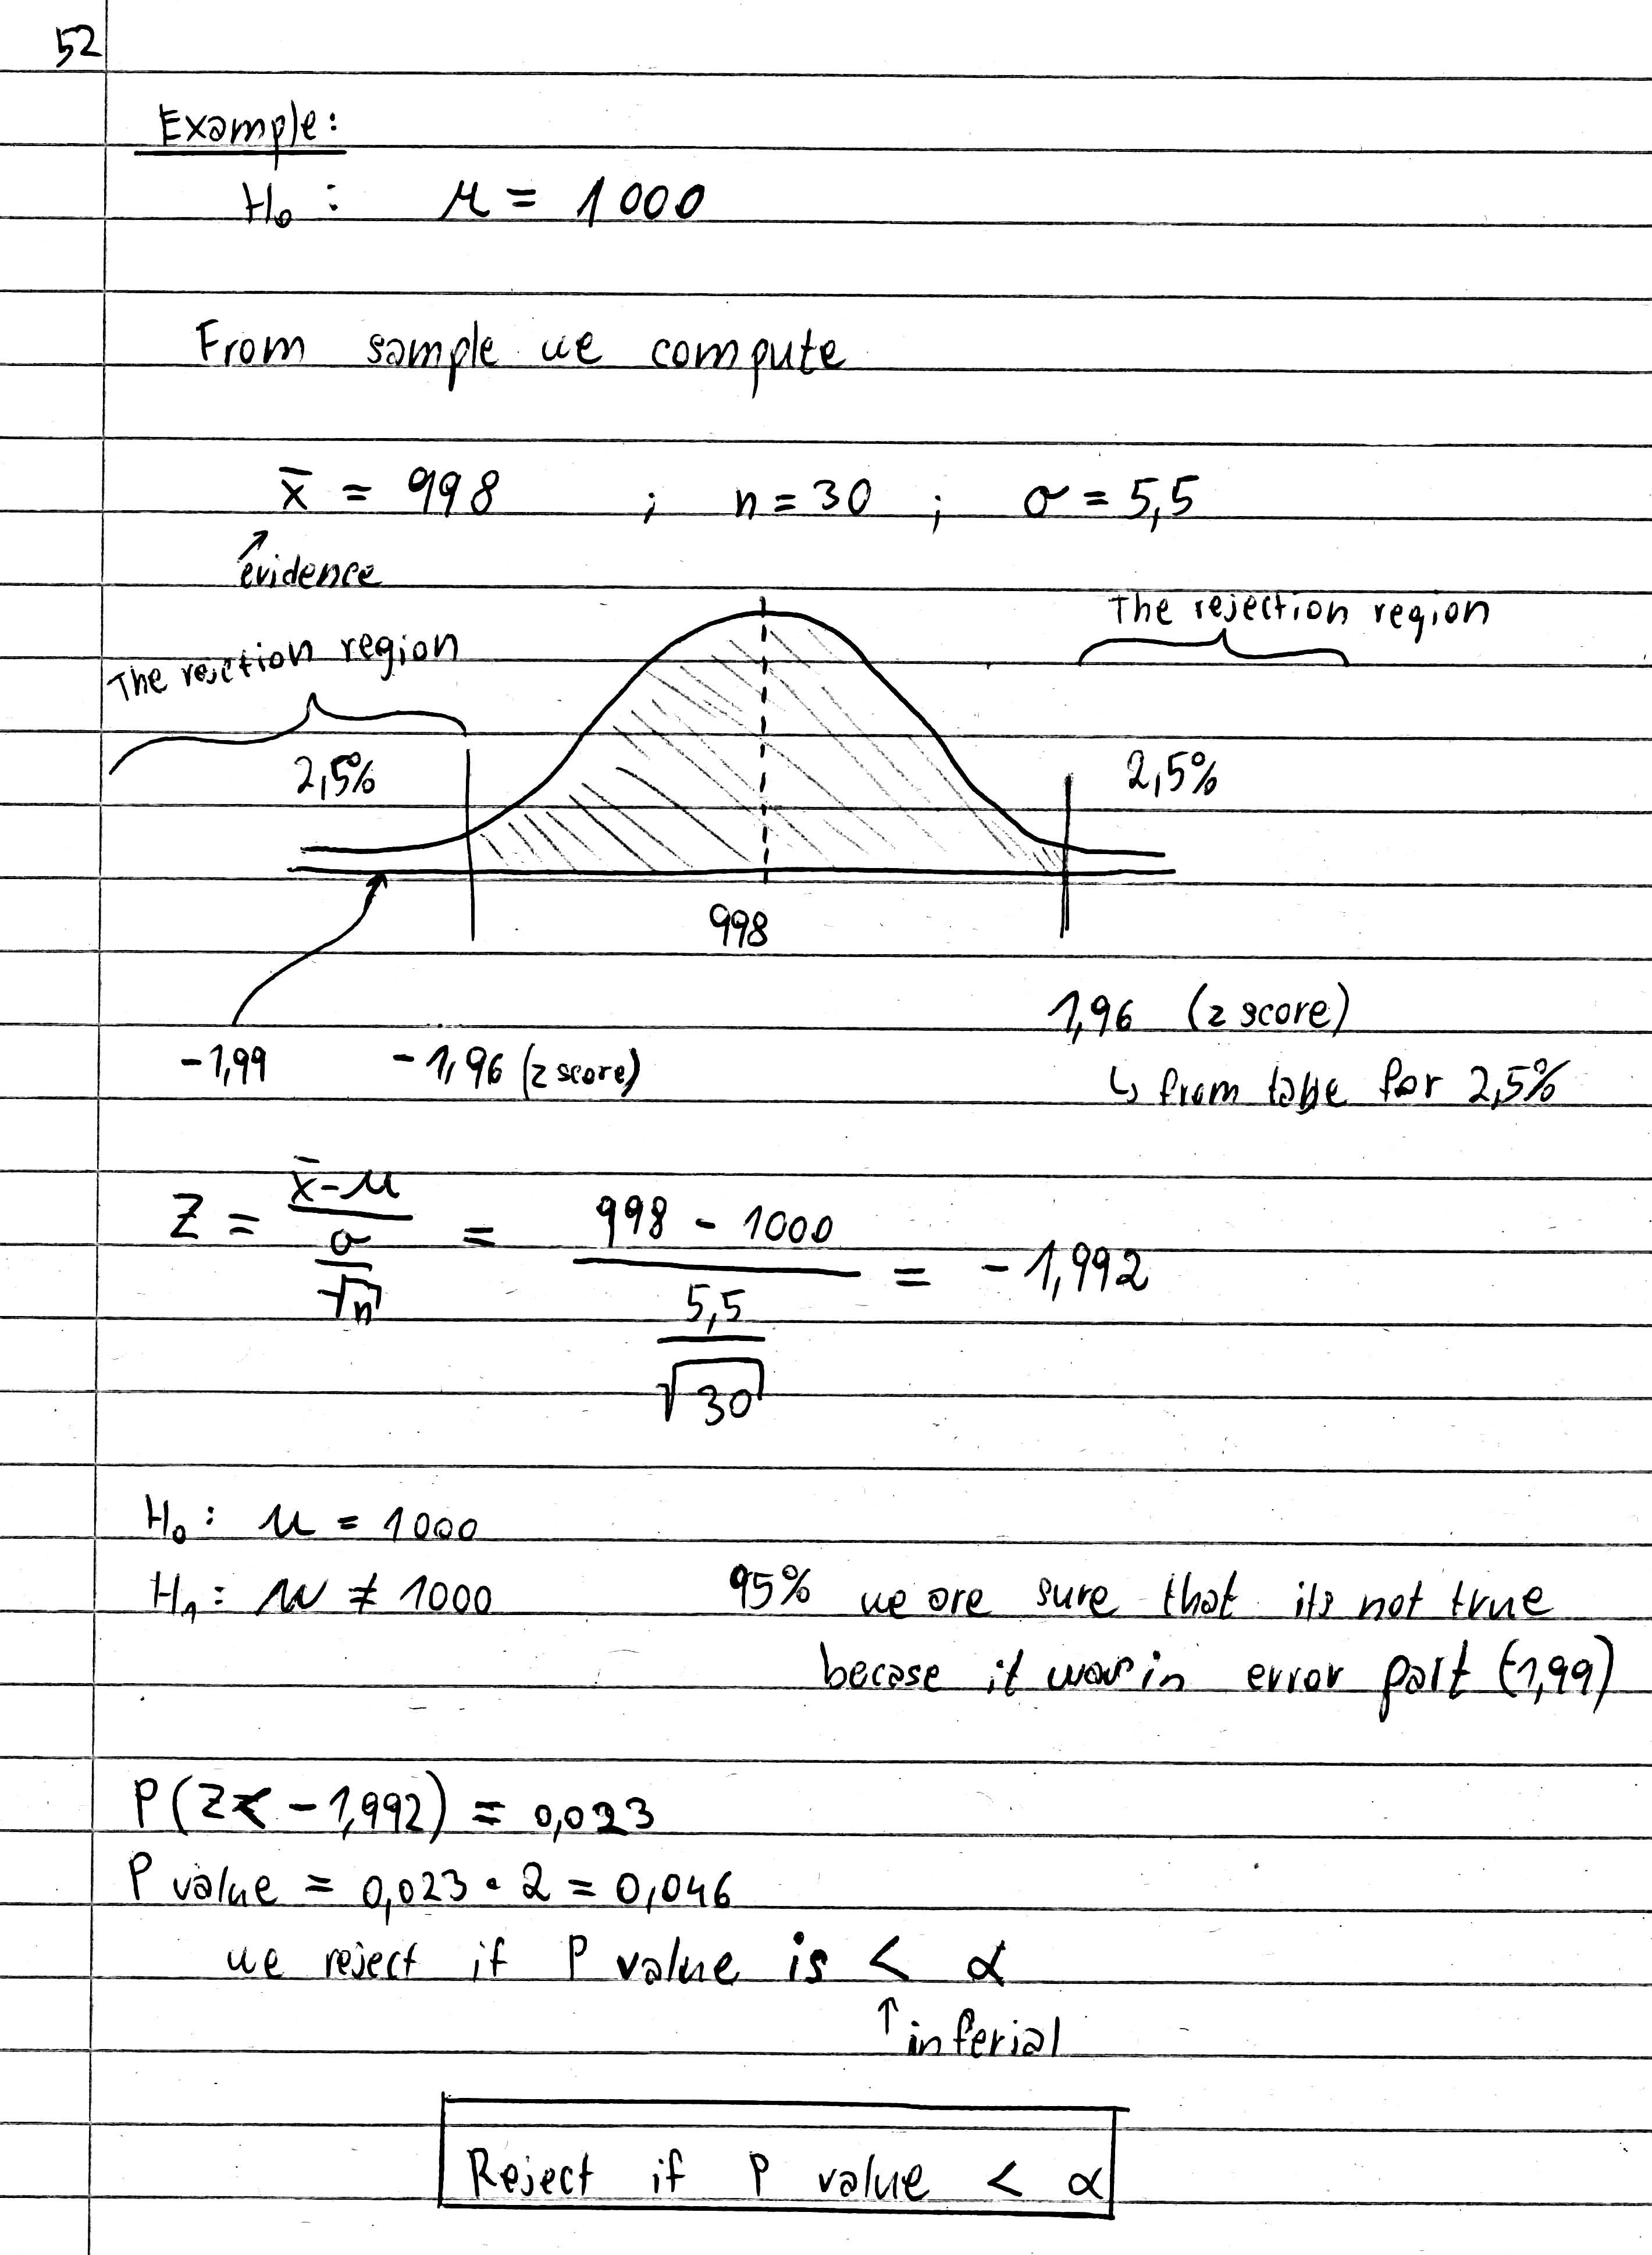 52
Example:
H₀ : μ = 1000
From sample we compute
x̄ = 998 ; n = 30 ; σ = 5,5
↗
evidence
The rejection region
The rejction region
2,5%
2,5%
998
1,96 (z score)
-1,99 -1,96 (z score)
↳ from table for 2,5%
Z = (x̄ - μ) / (σ / √n) = (998 - 1000) / (5,5 / √30) = -1,992
H₀ : μ = 1000
H₁ : μ ≠ 1000 95% we are sure that its not true
becase it was in error part (-1,99)
P(Z < -1,992) = 0,023
P value = 0,023 · 2 = 0,046
we reject if P value is < α
↑ inferial
Reject if P value < α